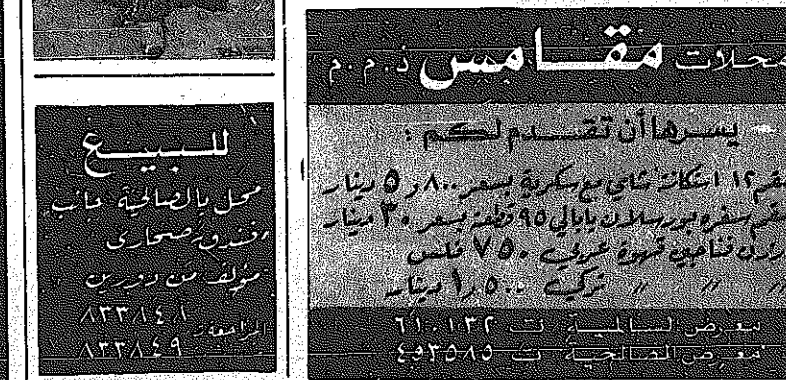 محلات مقامس ذ.م.م
يسرها أن تقدم لكم :
طقم ١٢ استكانة شاي مع سكرية بسعر ٨٠٠ر٥ دينار
طقم سفره بورسلان ياباني ٩٥ قطعة بسعر ٣٠ دينار
درزن فناجين قهوة عربي ٧٥٠ فلس
〃 〃 〃 تركي ٥٠٠ر١ دينار
معرض السالمية ت ٦١٠١٣٢
معرض الصالحية ت ٤٥٣٥٨٥
للبيع
محل بالصالحية جانب
فندق صحارى
مؤلف من دورين
المراجعة: ٨٣٣٨٤٨
٨٣٣٨٤٩